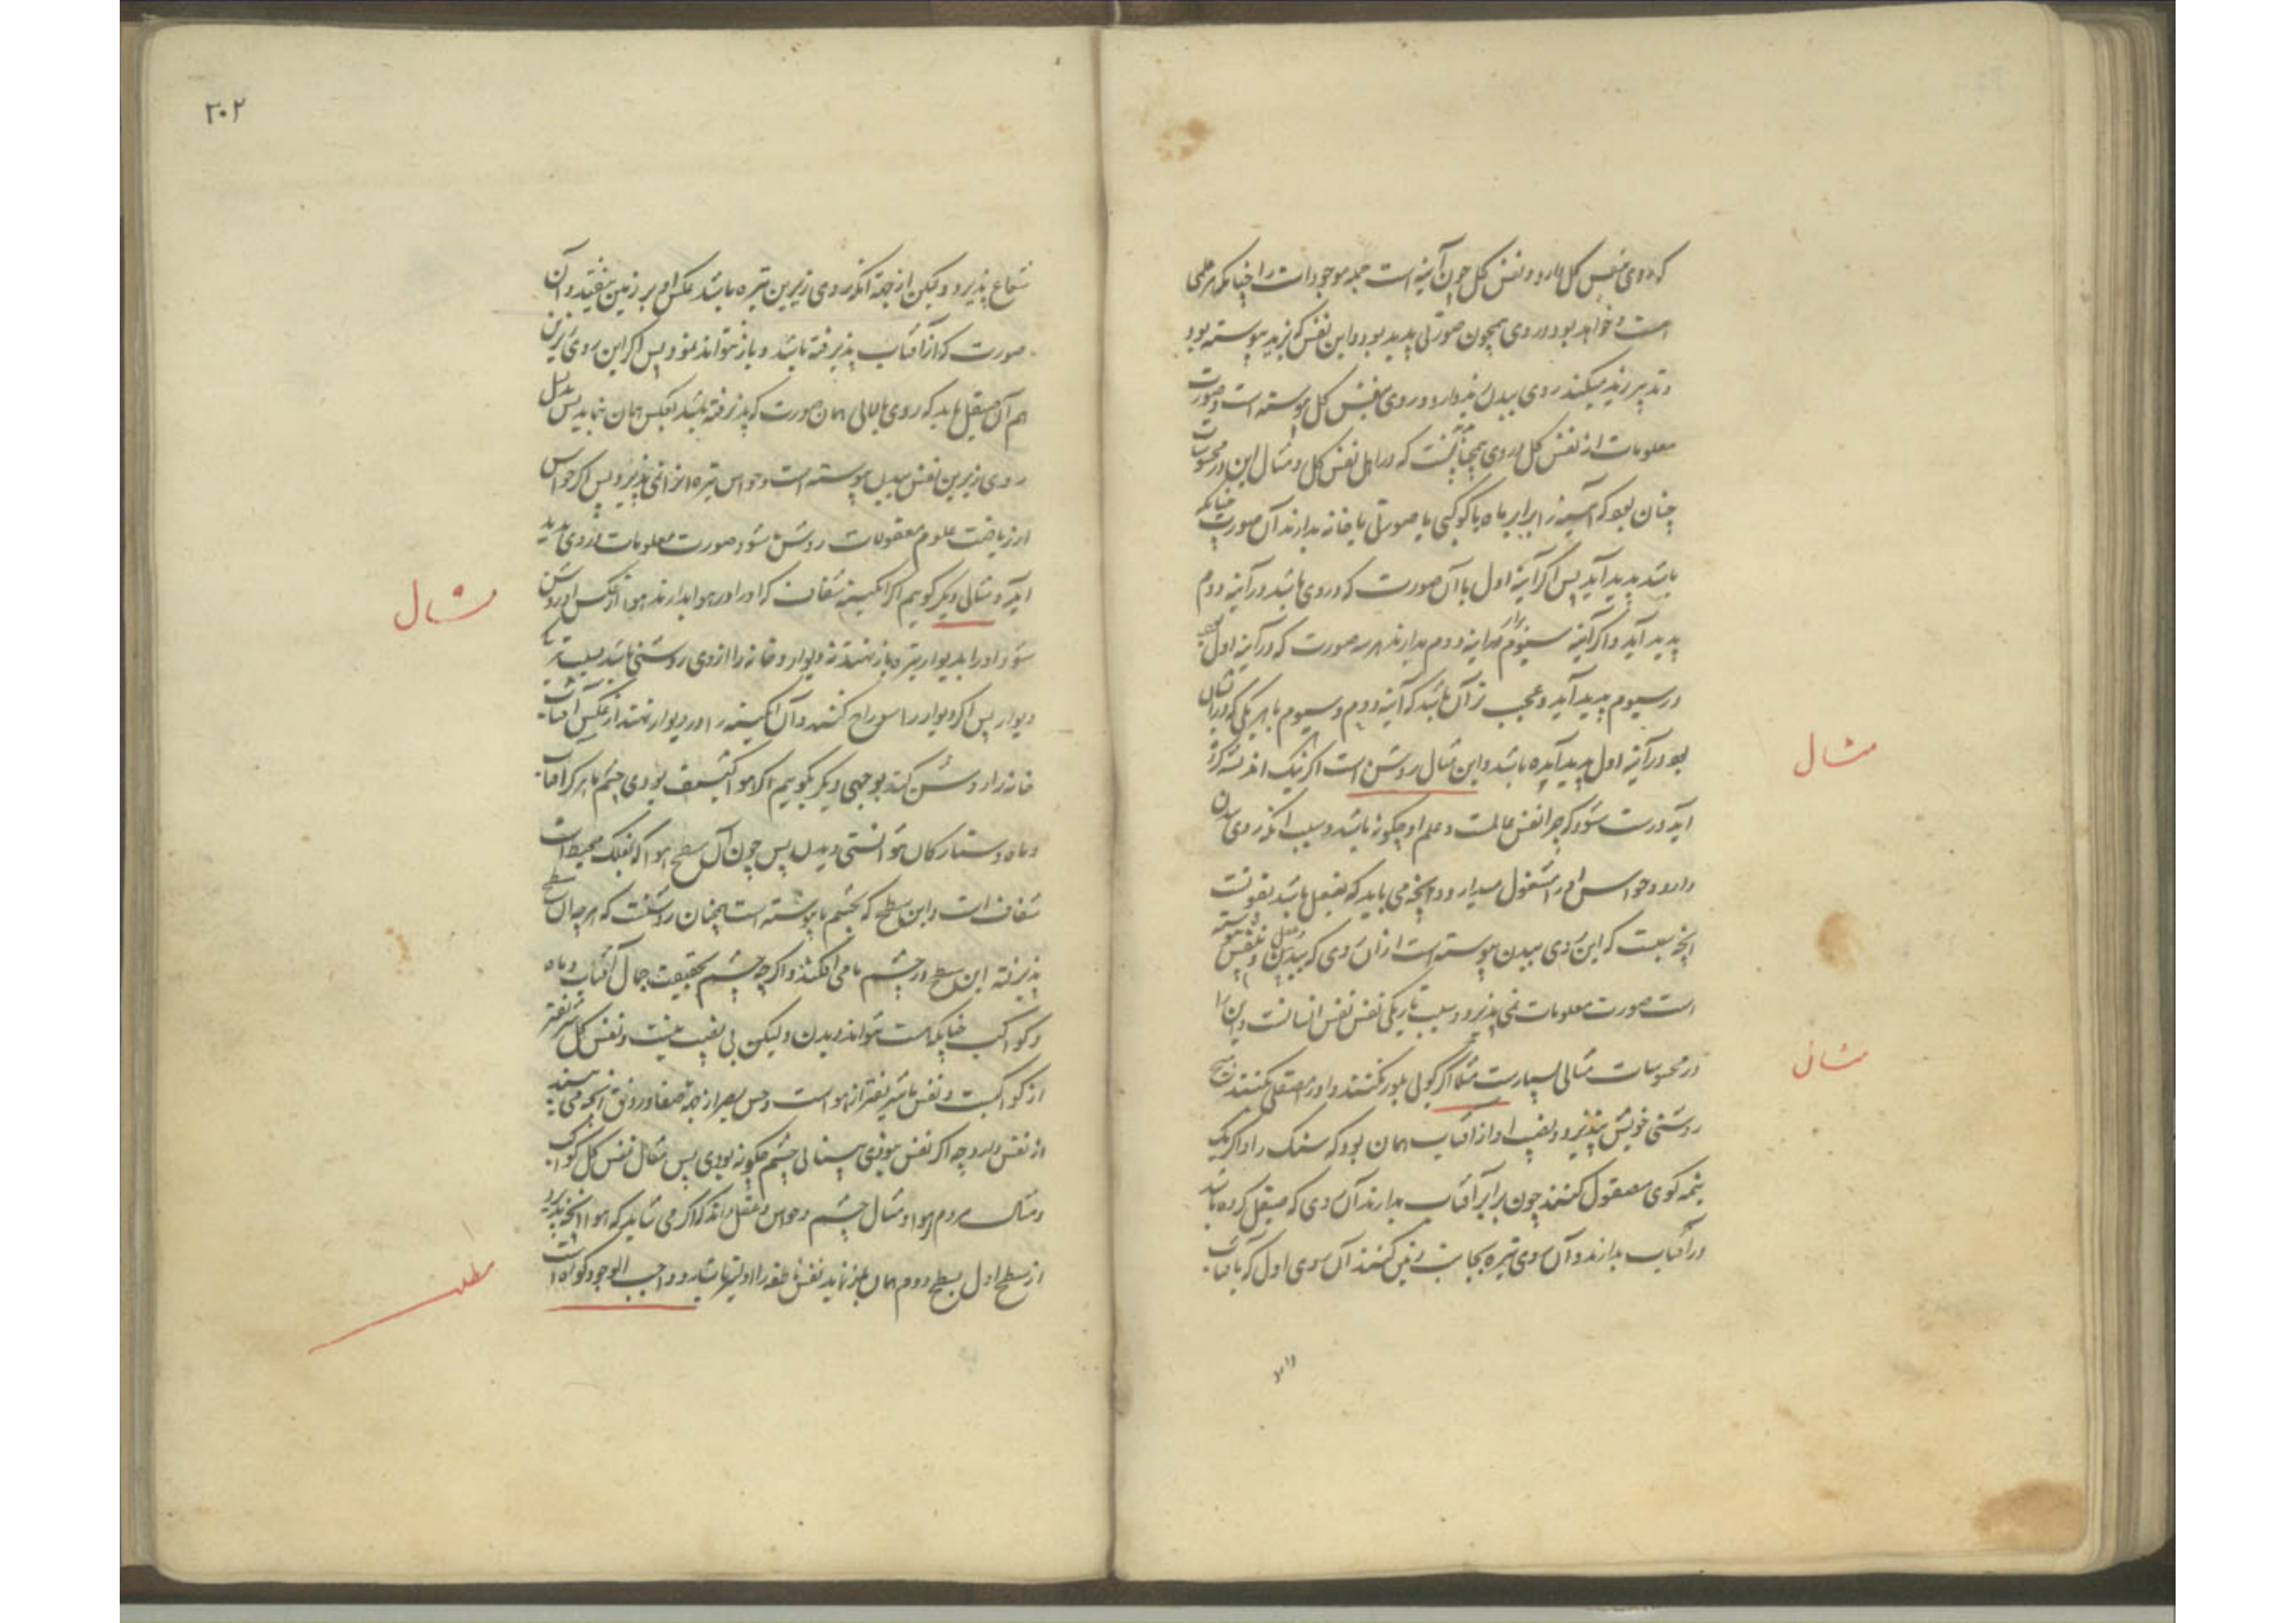 که روی بنفس کل دارد و نفس کل چون آینه است جمله موجودات را چنانکه هر علمی
است و خواهد بود در وی همچون صورتی پدید بود و این نفس که بزید پیوسته بود
و تدبیر زید میکند روی ببدن زید دارد و روی بنفس کل پیوسته است و صورت
معلومات از نفس کل در وی همچنانست که در اول نفس کل و مثال این در محسوسات
چنان بود که آیینه را برابر ماه یا کوکبی یا صورتی یا خانه بدارند آن صورت چنانکه
باشد پدید آید پس اگر آینه اول با آن صورت که در وی باشد در آینه دوم
پدید آید و اگر آینه سیوم برابر آینه دوم بدارند هر صورت که در آینه اول
در سیوم پدید آید و عجب نه آن باشد که آینه دوم و سیوم با هر یکی که در آن
بود در آینه اول پدید آیده باشد و این مثال روشن است اگر نیک اندیشه کرده
آید درست شود که چرا نفس عالمست و علم او چگونه باشد و سبب آنکه روی ببدن
دارد و حواس او را مشغول میدارد و آنچه می باید که بفعل باشد بقوتست
آنچه بسبب که این روی ببدن پیوسته است از آن روی که ببدن و بنفس پیوسته
است صورت معلومات نمی پذیرد و بسبب تاریکی نفس نفس انسانست و این را
در محسوسات مثالی بسیارست مثلا اگر گویی بلور کنند و او را صقلی نکنند هیچ
روشنی خویش نپذیرد و نصیب او از آفتاب همان بود که سنگ را و اگر یک
نیمه گوی مصقول کنند چون برابر آفتاب بدارند آن روی که صیقل کرده باشد
در آفتاب بدارند و آن روی تیره بجانب زمین کنند آن روی اول که با آفتاب
دارد
مثال
مثال
۲۰۲
شعاع پذیرد ولیکن از جهة آنکه روی زیرین تیره باشد عکس او بر زمین نیفتد و آن
صورت که از آفتاب پذیرفته باشد و باز نتواند نمود پس اگر این روی زیرین
هم آن صیقل یابد که روی بالایی همان صورت که پذیرفته باشد بعکس همان بنماید پس
روی زیرین نفس ببدن پیوسته است و حواس تیره از آن نمی پذیرد پس اگر حواس
از ریاضت علوم معقولات روشن شود صورت معلومات در وی پدید
آید و مثالی دیگر گوییم اگر آبگینه شفاف که او را در هوا بدارند هوا از عکس او روشن
شود و او را بدیوار تیره باز نهند نه دیوار و خانه را از وی روشنی باشد بسبب
دیوار پس اگر دیوار را سوراخ کنند و آن آبگینه را در دیوار نهند از عکس آفتاب
خانه را روشن کند بوجهی دیگر بگوییم اگر هوا کثیف بودی چشم ما هرگز آفتاب
و ماه و ستارگان نتوانستی دیدن پس چون آن سطح هوا که بفلک محیط است
شفاف است و این سطح که بچشم ما پیوسته است همچنان روشنست که هرچه آن سطح
پذیرفته این سطح در چشم ما می افکند و اگر چه چشم بحقیقت جمال آفتاب و ماه
و کواکب چنانکه هست نتواند دیدن ولیکن بی نصیب نیست و نفس کل شریفتر
از کواکبست و نفس ما شریفتر از هوا است و حس بصر از جهة صفا و رونق آنچه می بیند
از نفس دارد چه اگر نفس نبودی بینایی چشم چگونه بودی پس مثال نفس کل کواکب
و مثال مردم هوا و مثال چشم و حواس و عقل داند که اگر می شاید که هوا آنچه پذیرد
از سطح اول بسطح دوم همان باز نماید نفس ناطقه را اولیتر باشد و واجب الوجود گواه است
مثال
مطلب